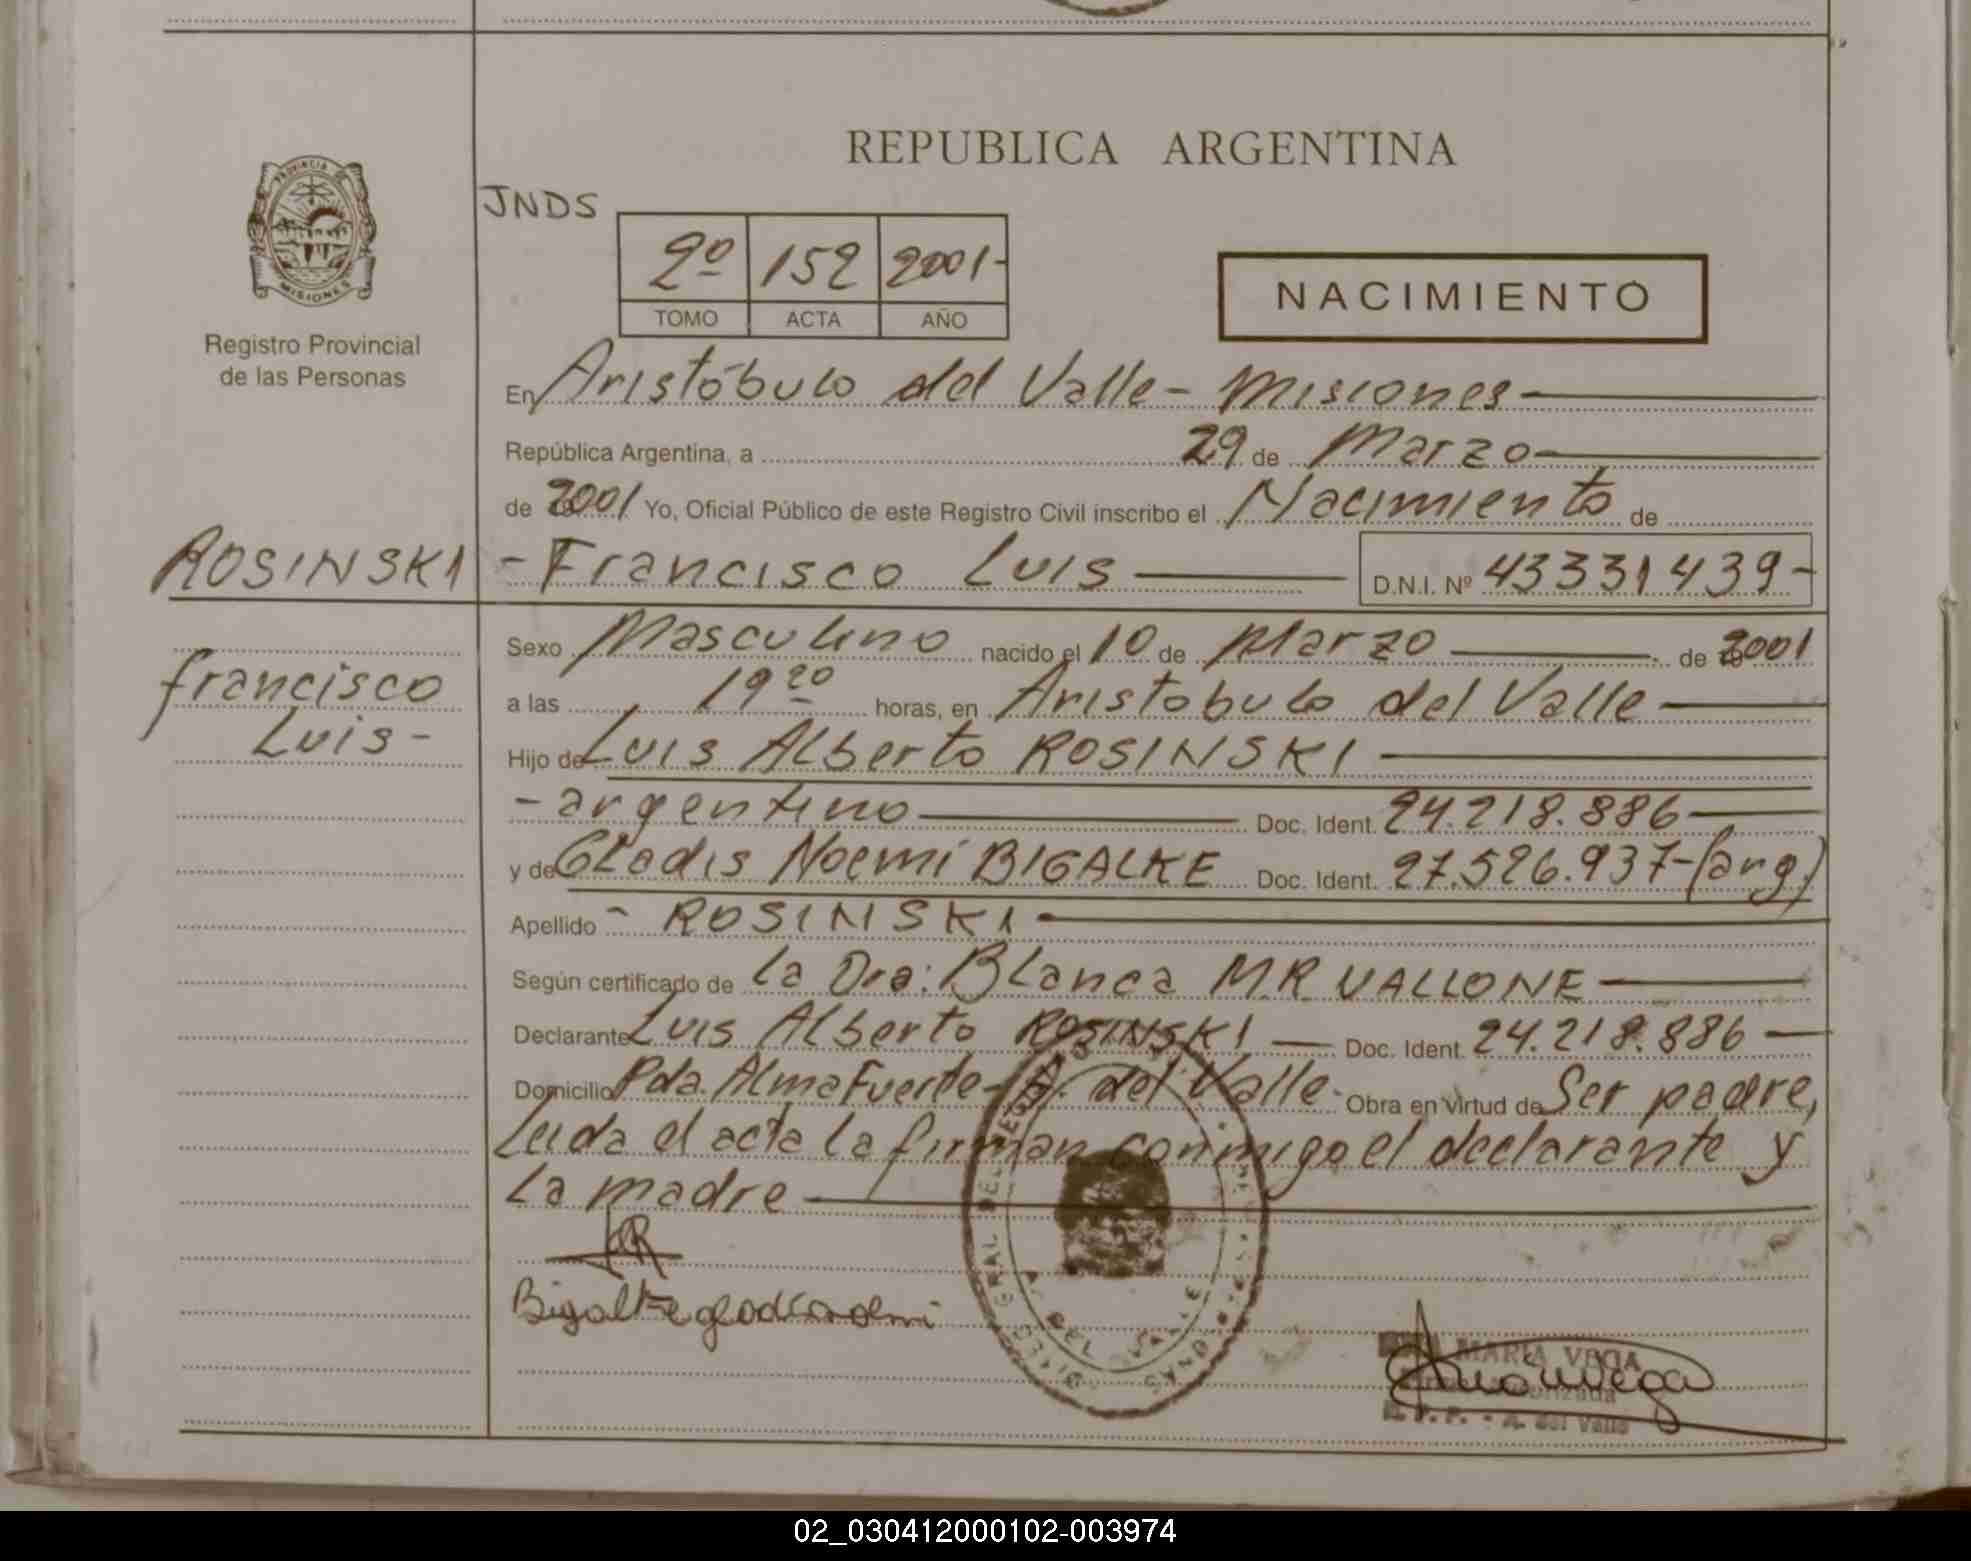 REPUBLICA ARGENTINA
PROVINCIA DE
MISIONES
Registro Provincial
de las Personas
JNDS
2º 152 2001-
TOMO ACTA AÑO
NACIMIENTO
En Aristóbulo del Valle - Misiones
República Argentina, a 29 de Marzo
de 2001 Yo, Oficial Público de este Registro Civil inscribo el Nacimiento de
ROSINSKI - Francisco Luis D.N.I. Nº 43331439-
Francisco
Luis-
Sexo Masculino nacido el 10 de Marzo de 2001
a las 19 20 horas, en Aristobulo del Valle
Hijo de Luis Alberto ROSINSKI
- argentino Doc. Ident. 24.218.886
y de Gladis Noemí BIGALKE Doc. Ident. 27.526.937-(arg.)
Apellido - ROSINSKI
Según certificado de la Dra: Blanca MR VALLONE
Declarante Luis Alberto ROSINSKI Doc. Ident. 24.218.886
Domicilio Pda. AlmaFuerte - A. del Valle. Obra en virtud de Ser padre,
Leida el acta la firman conmigo el declarante y
la madre
LR
Bigalke gladis noemi
MARIA VEGA
R. P. P. - A. del Valle
02_030412000102-003974